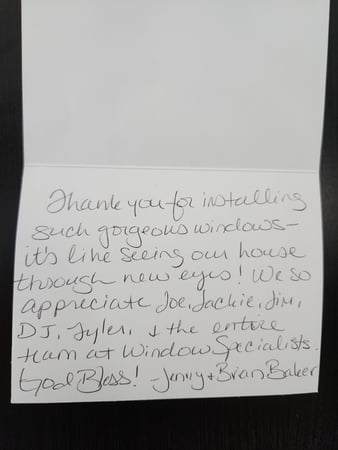 Thank you for installing
such gorgeous windows -
it's like seeing our house
through new eyes! We so
appreciate Joe, Jackie, Jim,
DJ, Tyler, & the entire
team at Window Specialists.
God Bless! - Jenny & Brian Baker